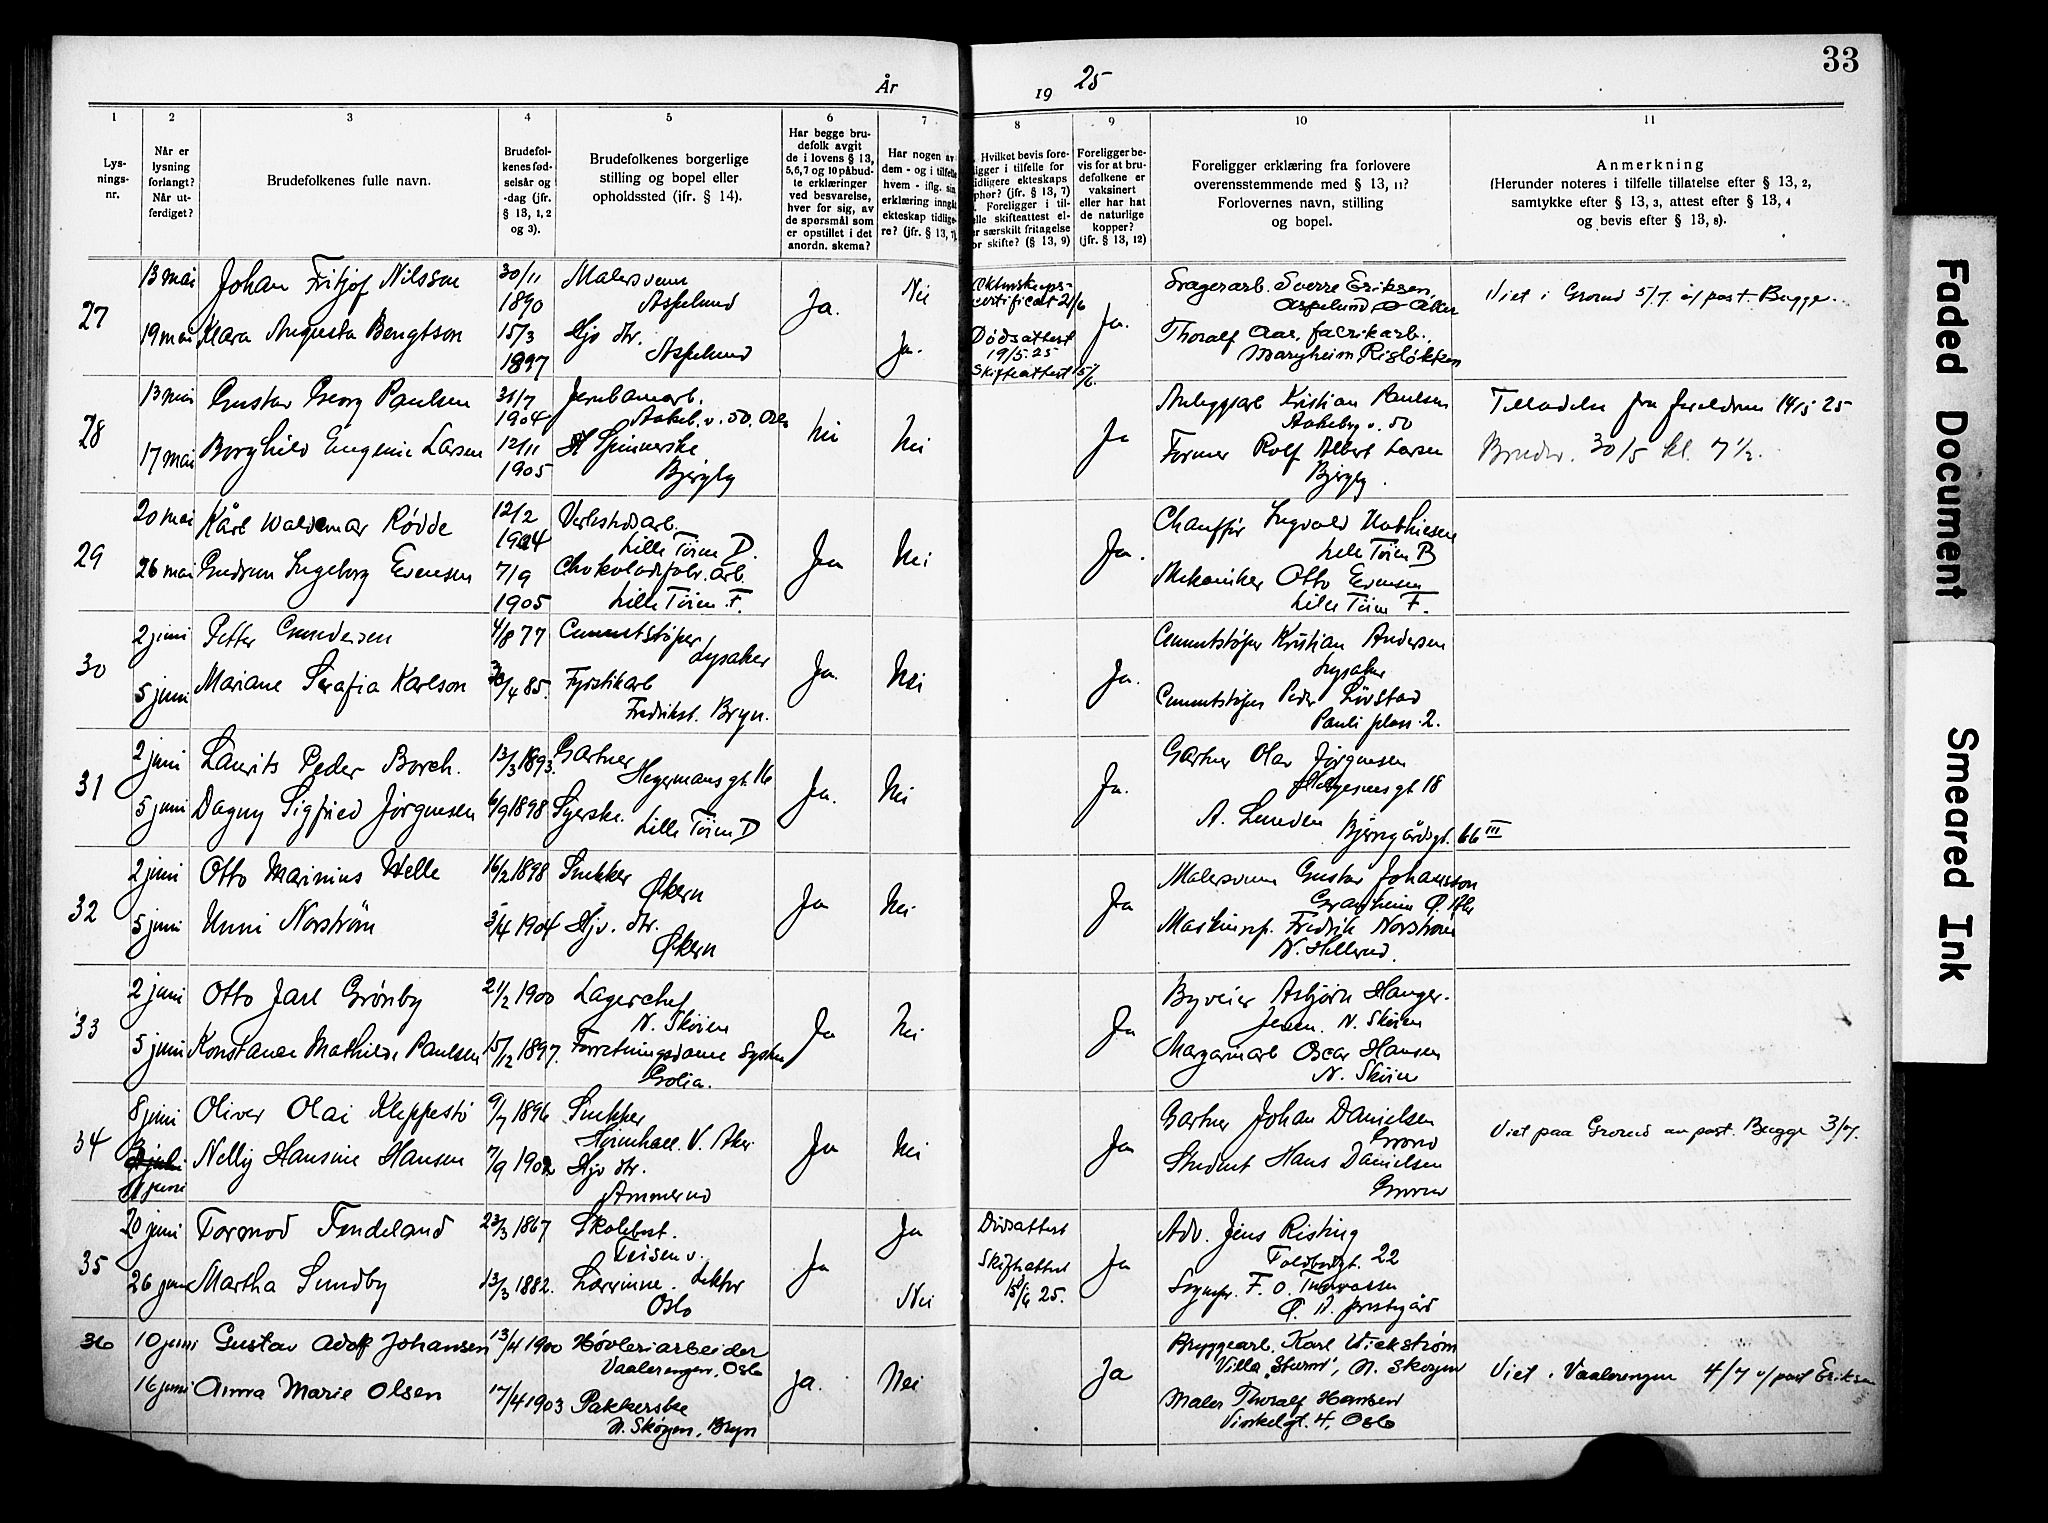 33
År 1925
1 2 3 4 5 6 7 8 9 10 11
Lysningsnr.
Når er lysning forlangt? Når utferdiget?
Brudefolkenes fulle navn.
Brudefolkenes fødselsår og -dag (jfr. § 13, 1, 2 og 3).
Brudefolkenes borgerlige stilling og bopel eller opholdssted (jfr. § 14).
Har begge brudefolk avgit de i lovens § 13, 5, 6, 7 og 10 påbudte erklæringer ved besvarelse, hver for sig, av de spørsmål som er opstillet i det anordn. skema?
Har nogen av dem - og i tilfelle hvem - iflg. sin erklæring inngått ekteskap tidligere? (jfr. § 13, 7)
Hvilket bevis foreligger i tilfelle for tidligere ekteskaps ophør? (jfr. § 13, 7) Foreligger i tilfelle skifteattest eller særskilt fritagelse for skifte? (§ 13, 9)
Foreligger bevis for at brudefolkene er vaksinert eller har hat de naturlige kopper? (jfr. § 13, 12)
Foreligger erklæring fra forlovere overensstemmende med § 13, 11? Forlovernes navn, stilling og bopel.
Anmerkning (Herunder noteres i tilfelle tillatelse efter § 13, 2, samtykke efter § 13, 3, attest efter § 13, 4 og bevis efter § 13, 8).
27 13 mai Johan Fritjof Nilsson 30/11 1890 Malersvenn Aspelund Ja. Nei Ja. Sverre Eriksen Aspelund Viet i Grorud 5/7 af past. Bugge.
19 mai Klara Augusta Bengtson 15/3 1897 Hjv dtr. Aspelund Ja. Dødsattest 19/5.25 Skifteattest Thoralf Aas, fabrikarb. Maryheim, Risløkken
28 13 mai Gustav Georg Paulsen 31/7 1904 Jernbanearb. Nei Nei Ja Anleggsarb Kristian Paulsen Aakeberg v. 50 Tilladelse fra foreldrene 14/5 25
17 mai Borghild Eugenie Larsen 12/11 1905 Spinnerske Bjergby Former Rolf Albert Larsen Bjergby. 30/5 kl. 7 1/2.
29 20 mai Kåre Waldemar Rødde 12/2 1904 Verkstedsarb. Lille Töien D. Ja Nei Ja. Chauffør Ingvald Mathiesen Lille Töien B
26 mai Gudrun Ingeborg Evensen 7/9 1905 Chokoladefabr. arb. Lille Töien F. Mekaniker Otto Evensen Lille Töien F.
30 2 juni Petter Gundersen 4/8 77 Cementstøper Lysaker Ja. Nei Ja. Cementstøper Kristian Andersen Lysaker
5 juni Mariane Serafia Karlson /4 85. Fyrstikarb Fredrikst. Bryn. Cementstøper Peder Lövstad Pauli plass. 2.
31 2 juni Laurits Peder Borch. 13/3 1893. Gartner Hegermans gt. 16 Ja. Nei Ja. Gartner Olav Jørgensen 18
5 juni Dagny Sigfried Jörgensen 6/9 1898 Syerske. Lille Töien D A. Lunden Bjerregårdsgt. 66 III
32 2 juni Otto Marinius Welle 16/2 1898 Snekker Økern Ja Nei Ja Malersvenn Gustav Johansson
5 juni Unni Norström 3/4 1904 Hjv. dtr. Økern Fredrik Norström N. Hellerud.
33 2 juni Otto Jarl Grönby 21/2 1900 Lagerchef N. Skøien Ja Nei Ja Asbjørn Hanger-Jensen. N. Skøien
5 juni Konstance Mathilde Paulsen 15/12 1897. Forretningsdame Golia. Margarinarb Oscar Hansen N. Skøien
34 8 juni Oliver Olai Kleppestö 9/7 1896 Snekker V. Aker Ja Nei Ja Gartner Johan Danielsen Grorud Viet paa Grorud av past. Bugge 3/7.
11 juni Nelly Hansine Hansen 7/9 1902 Hjv dtr. Ammerud Student Hans Danielsen Grorud
35 20 juni Tormod Fendeland 23/3 1867 Skolebest. Teisen v. Ja Ja Dødsattest Skifteattest 25. Ja Adv. Jens Risting Toldbodgt. 22
26 juni Martha Sundby 13/3 1882. Lærerinne. Oslo Nei Sognepr. F. O. Ø. A. prestegård
36 10 juni Gustav Adolf Johansen 13/4 1900 Høvleriarbeider Vaalerengen, Oslo ja. Nei Ja Bryggearb. Karl Wickstrøm Villa "Sturm", N. Skøyen Viet i Vaalerengen 4/7 v/past Eriksen
16 juni Anna Marie Olsen 17/4 1903 Pakkerske N. Skøyen, Bryn Maler Thoralf Hansen Vinkelgt. 4, Oslo
Faded Document
Smeared Ink